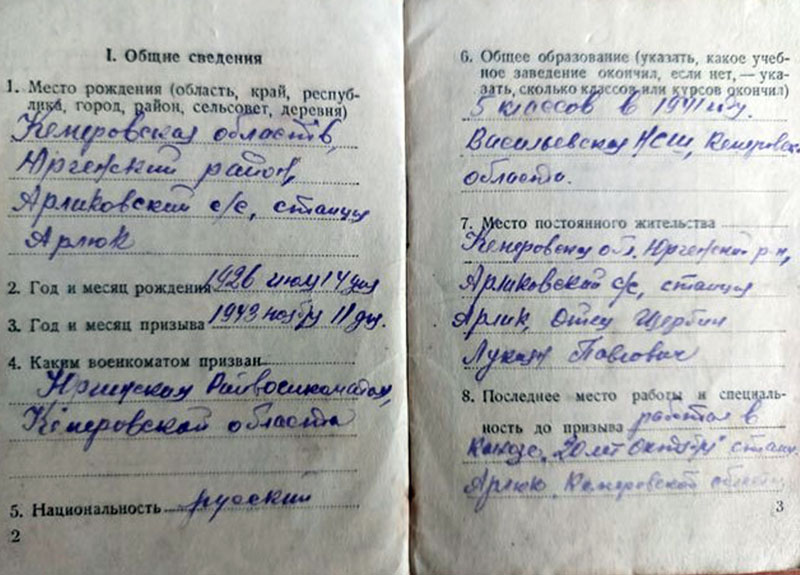 I. Общие сведения
1. Место рождения (область, край, респуб-
лика, город, район, сельсовет, деревня)
Кемеровская область,
Юргенский район,
Арликовский с/с, станция
Арлюк
2. Год и месяц рождения 1926 июлу 14 дня
3. Год и месяц призыва 1943 ноябр 11 дн.
4. Каким военкоматом призван
Юргинском Райвоенкоматом,
Кемеровской области
5. Национальность русский
2
6. Общее образование (указать, какое учеб-
ное заведение окончил, если нет, — ука-
зать, сколько классов или курсов окончил)
5 классов в 1941 году.
Васильевская НСШ, Кемеровск
области.
7. Место постоянного жительства
Кемеровску обл. Юргенский р-н,
Арликовский с/с, станция
Арлик, Отец Щербин
Лукан Павлович
8. Последнее место работы и специаль-
ность до призыва работал в
колхозе "20 лет Октября" станц.
Арлюк, Кемеровской области
3